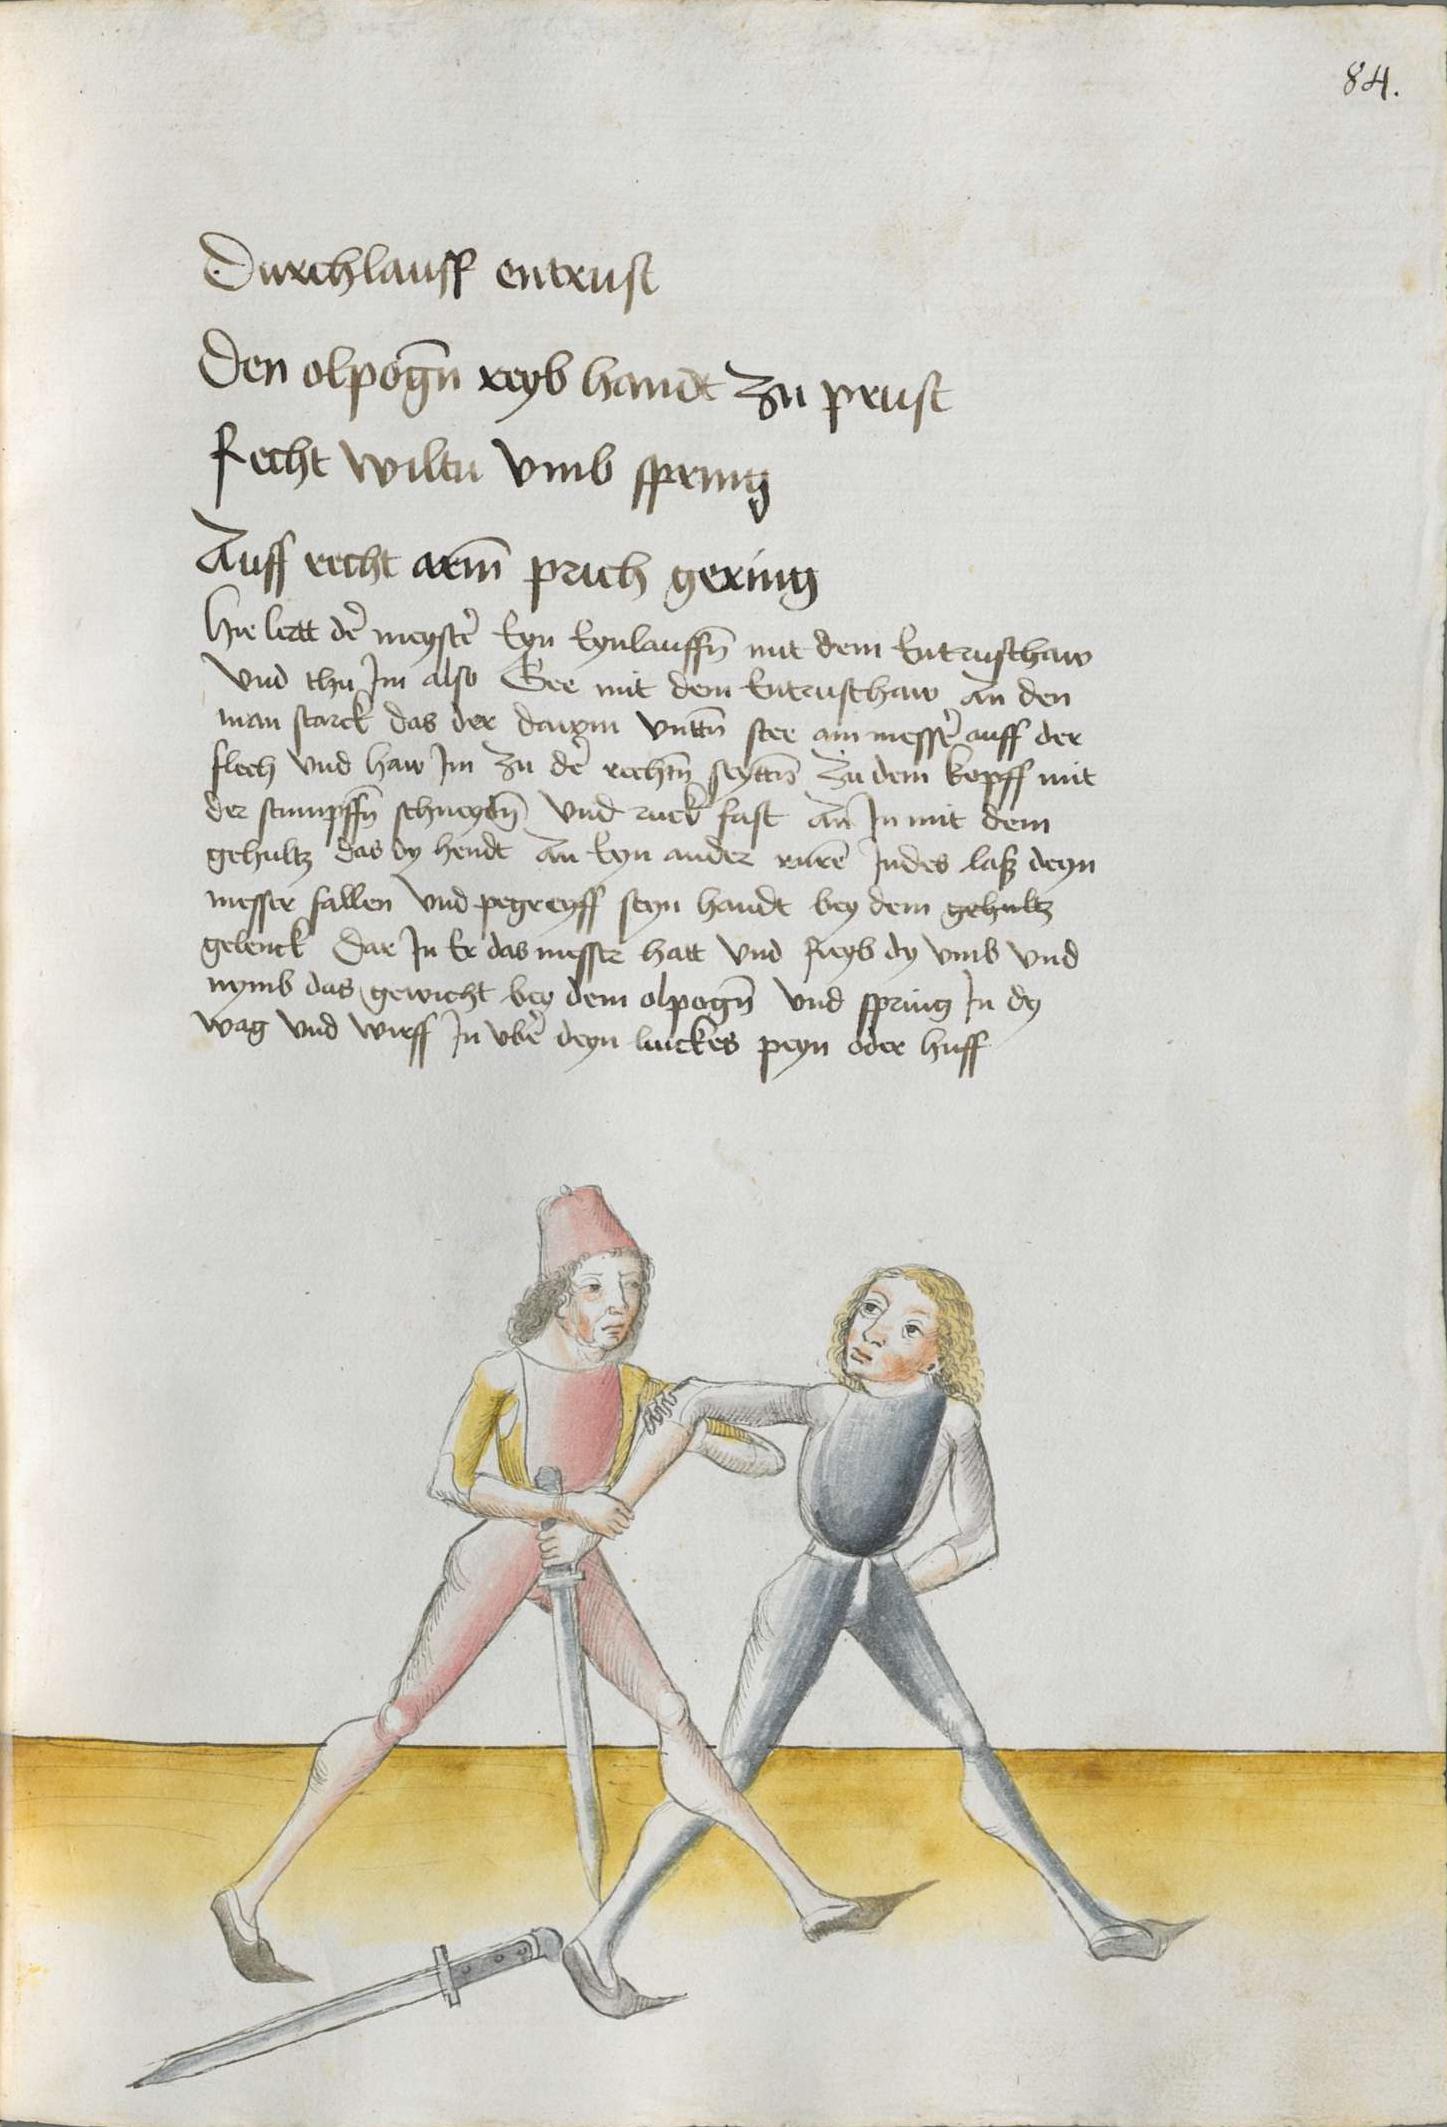 84.
Durchlauff entrust
Den olpogn̄ reyb handt Zu prust
Recht wiltu vmb spring
Auff recht arm̄ prich gering
Hie lertt der̉ meyster̉ Eyn Eynlauffn̄ mit dem Entrusthaw
Vnd thu Im also Gee mit dem Entrusthaw An den
man starck das der dawm vnttn̄ stee am messer̉ auff der
flech vnd haw Im zu der̉ rechtn̄ seyttn̄ Zu dem kopff mit
der stumpffn̄ schneydn̄ vnd ruck fast An In mit dem
gehultz das dy hendt An Eyn ander rurē Indes laß deyn
messer fallen vnd pegreyff seyn handt bey dem gehultz
gelenck Dar In Er das messer hatt vnd Reyb dy vmb vnd
nymb das gewicht bey dem olpogn̄ vnd spring In dy
wag vnd wirff In vber̉ deyn linckes peyn oder huff